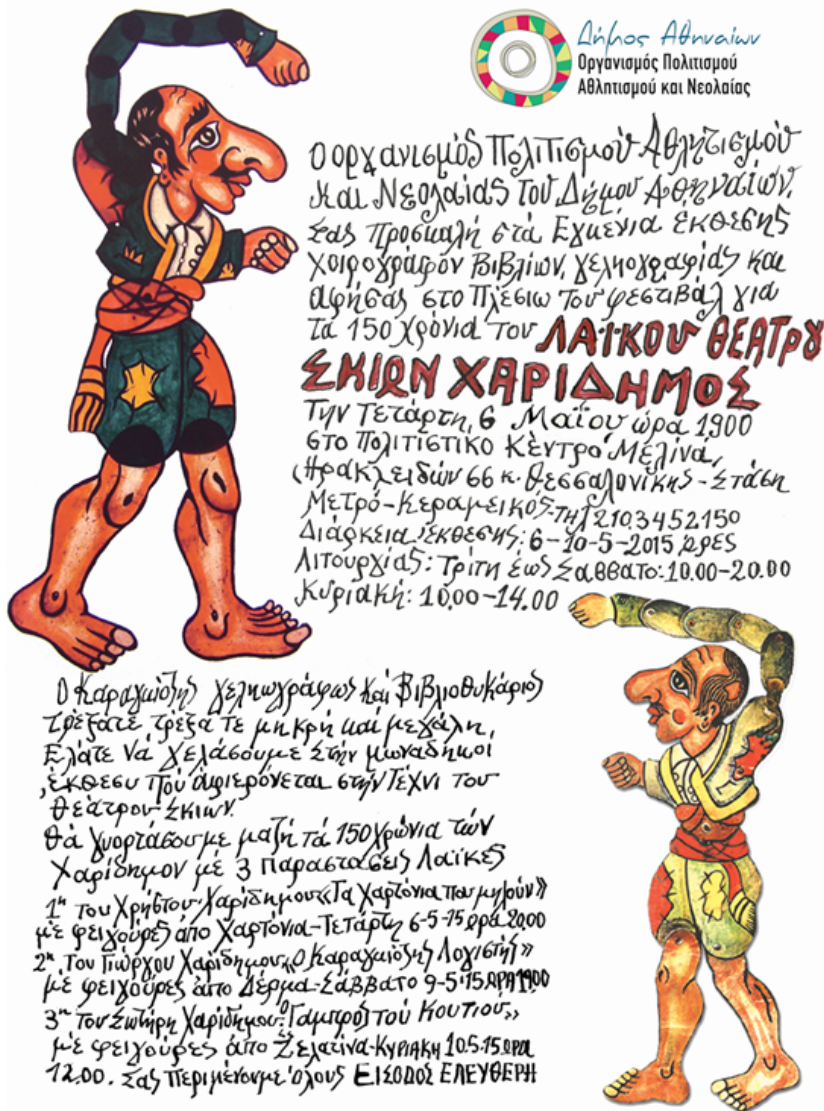 Δήμος Αθηναίων
Οργανισμός Πολιτισμού
Αθλητισμού και Νεολαίας
Ο οργανισμός Πολιτισμού Αθλητισμού
Και Νεολαίας του Δήμου Αθηναίων,
Σας Προσκαλή στα Εγκένια Εκθεσης
Χοιρογράφον Βιβλίων, γεληογραφίας και
αφήσας στο Πλέσιω του φεστιβάλ για
τα 150 χρόνια του ΛΑΪΚΟΥ ΘΕΑΤΡΟΥ
ΣΚΙΩΝ ΧΑΡΙΔΗΜΟΣ
Την Τετάρτη, 6 Μαΐου ώρα 1900
στο Πολιτιστικο Κέντρο Μελίνα,
(Ηρακλειδών 66 κ. Θεσσαλονίκης - Στάση
Μετρό-Κεραμεικός-τηλ 210 3452150
Διάρκεια έκθεσης: 6-10-5-2015 ώρες
Λιτουργίας: Τρίτη έως Σαββατο: 10.00-20.00
Κυριακή: 10.00-14.00
Ο Καραγκιόζης γεληωγράφως Και Βιβλιοθυκάριος
Τρέξατε τρέξα τε μηκρή και μεγάλη,
Ελάτε Να γελάσουμε Στήν μωναδηκοι
έκθεσυ Πού άφιερόνεται στήν Τέχνι του
θεάτρου Σκιών.
Θά γυορτάσουμε μαζή τά 150 χρώνια τών
Χαρίδημον μέ 3 Παραστάσεις Λαϊκές
1η του Χρήστου Χαρίδημου «Τα Χαρτόνια που μηλούν»
μέ φειγούρες άπο Χαρτόνια-Τετάρτη 6-5-15 ώρα 20.00
2η του Γιώργου Χαρίδημου «Ο Καραγκιόζης Λογιστής»
μέ φειγούρες άπο Δέρμα-Σάββατο 9-5-15 ΩΡΑ 19.00
3η του Σωτήρη Χαρίδημου Ο Γαμπρός τού Κουτιού»
μέ φειγούρες άπο Ζελατίνα-ΚΥΡΙΑΚΗ 10.5.15 ΩΡΑ
12.00. Σας Περιμένουμε όλους ΕΙΣΟΔΟΣ ΕΛΕΥΘΕΡΗ